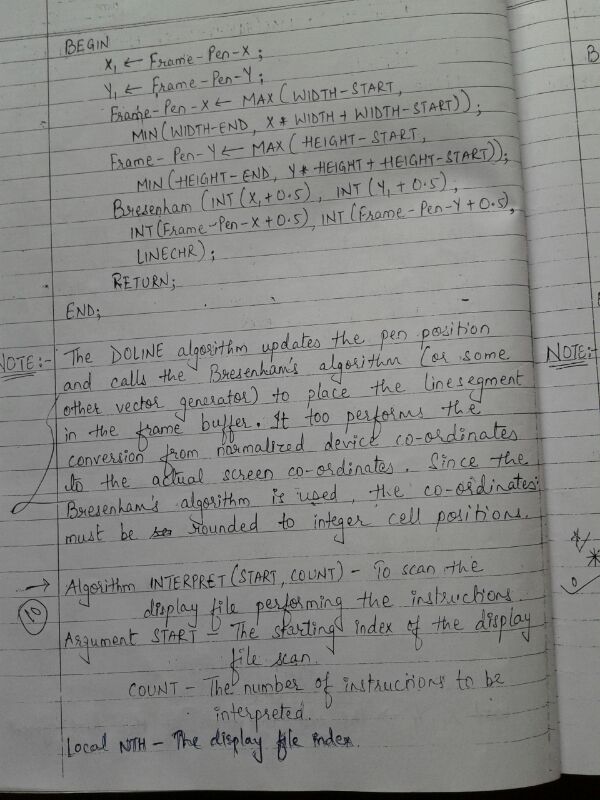 BEGIN
X₁ ← Frame-Pen-X;
Y₁ ← Frame-Pen-Y;
Frame-Pen-X ← MAX(WIDTH-START,
MIN(WIDTH-END, X * WIDTH + WIDTH-START));
Frame-Pen-Y ← MAX(HEIGHT-START,
MIN(HEIGHT-END, Y * HEIGHT + HEIGHT-START));
Bresenham (INT(X₁+0.5), INT(Y₁+0.5),
INT(Frame-Pen-X+0.5), INT(Frame-Pen-Y+0.5),
LINECHR);
RETURN;
END;
NOTE:- The DOLINE algorithm updates the pen position
and calls the Bresenham's algorithm (or some
other vector generator) to place the linesegment
in the frame buffer. It too performs the
conversion from normalized device co-ordinates
to the actual screen co-ordinates. Since the
Bresenham's algorithm is used, the co-ordinates
must be rounded to integer cell positions.
→ Algorithm INTERPRET(START, COUNT) - To scan the
10 display file performing the instructions.
Argument START - The starting index of the display
file scan.
COUNT - The number of instructions to be
interpreted.
Local NTH - The display file index.
B
NOTE:-